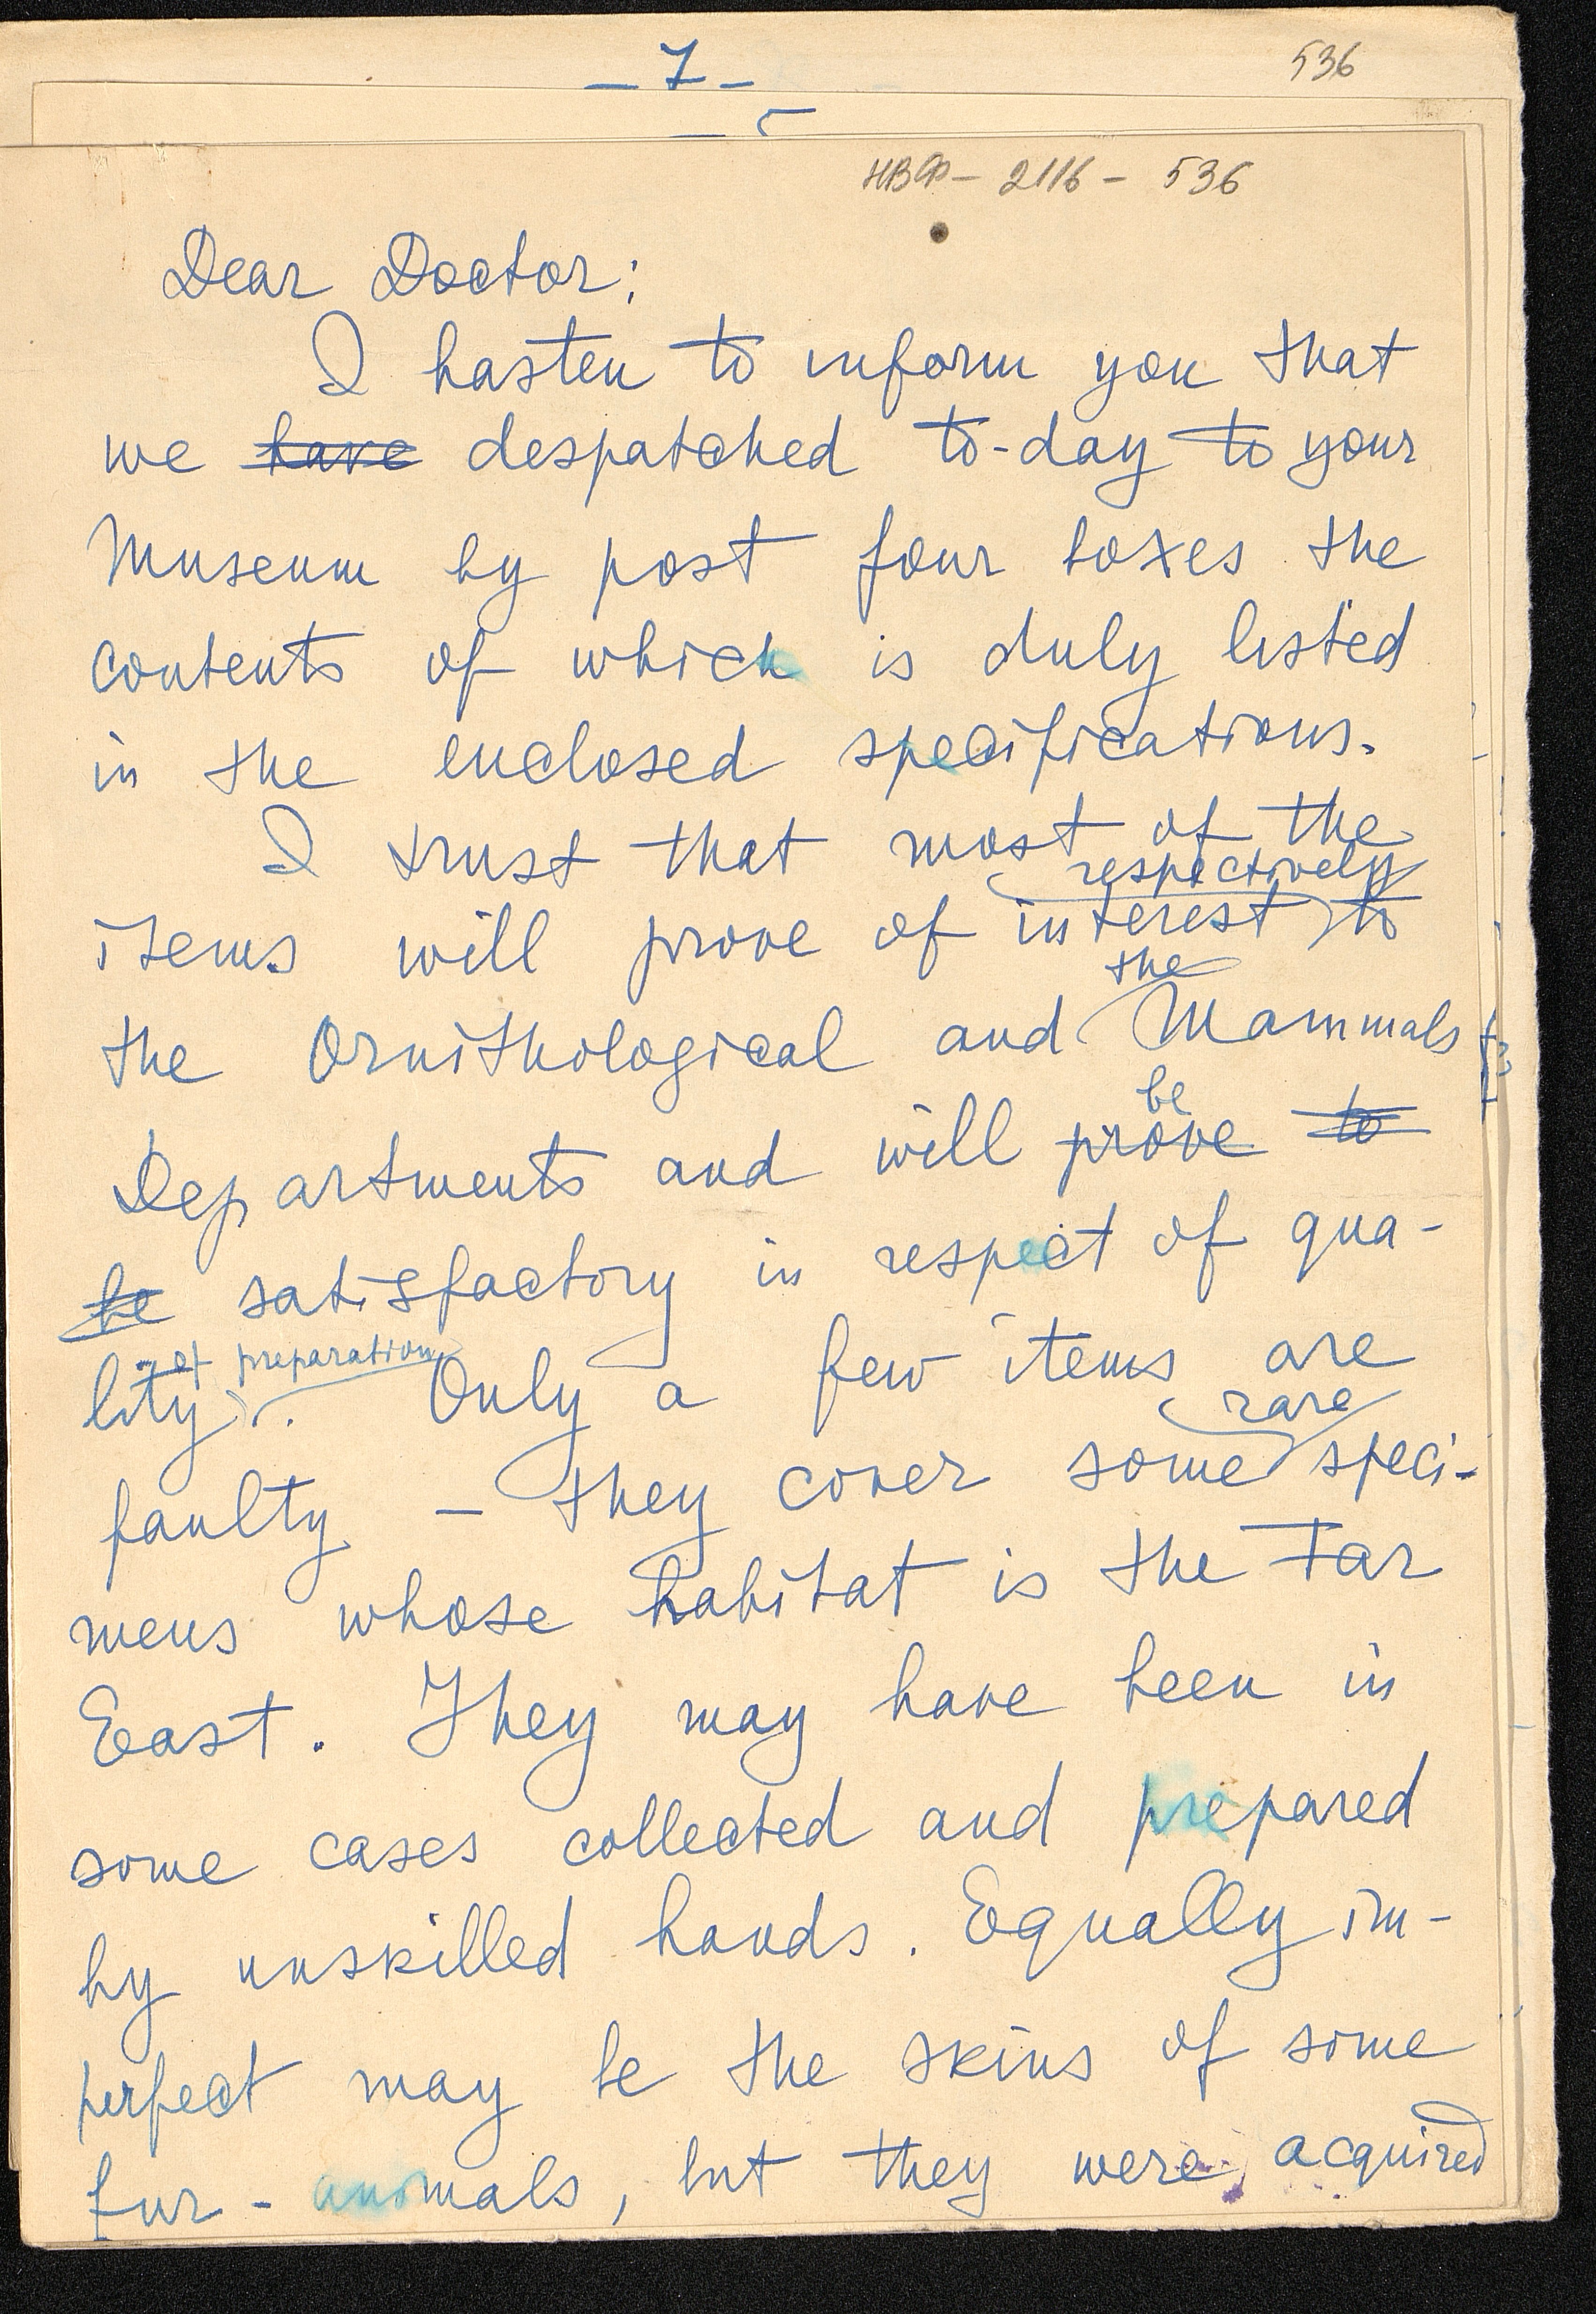 - 7 -
536
НВФ - 2116 - 536
Dear Doctor:
I hasten to inform you that
we have despatched to-day to your
Museum by post four boxes the
contents of which is duly listed
in the enclosed specifications.
I trust that most of the
respectively
items will prove of interest to
the
the Ornithological and Mammals
be
Departments and will prove to
be satisfactory in respect of qua-
of preparation
lity. Only a few items are
rare
faulty - they cover some speci-
mens whose habitat is the Far
East. They may have been in
some cases collected and prepared
by unskilled hands. Equally im-
perfect may be the skins of some
fur - animals, but they were acquired